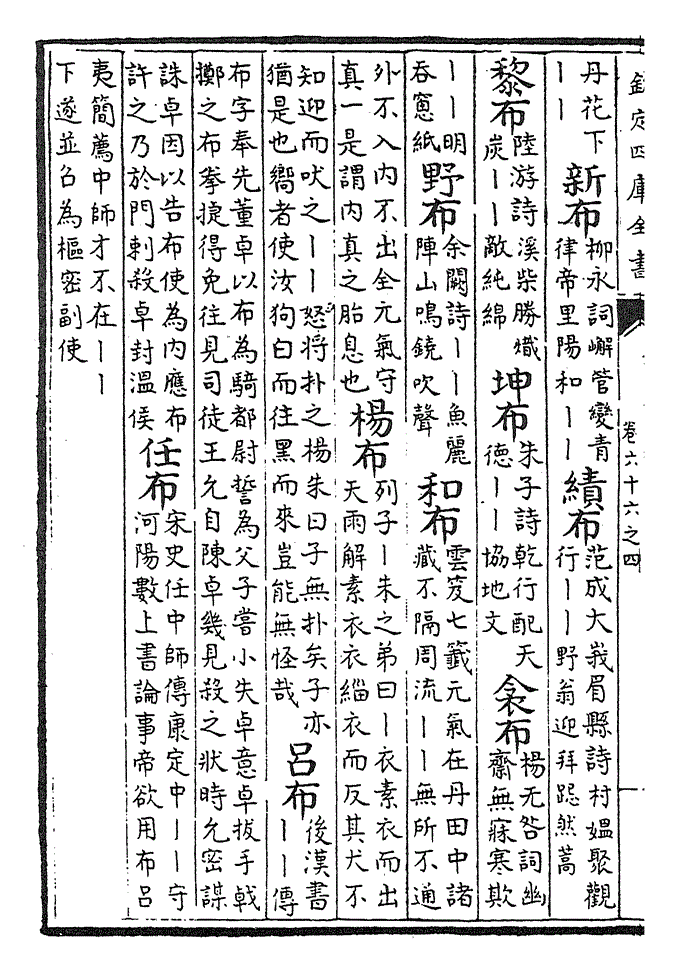 欽定四庫全書
卷六十六之四
丹花下
丨丨
新布
柳永詞嶰管變青
律帝里陽和丨丨
績布
范成大峩眉縣詩村媼聚觀
行丨丨野翁迎拜跽然蒿
黎布
陸游詩溪柴勝熾
炭丨丨敵純綿
坤布
朱子詩乾行配天
德丨丨協地文
衾布
楊无咎詞幽
齋無寐寒欺
丨丨明
吞窻紙
野布
余闕詩丨丨魚麗
陣山鳴鐃吹聲
和布
雲笈七籤元氣在丹田中諸
藏不隔周流丨丨無所不通
外不入内不出全元氣守
真一是謂内真之胎息也
楊布
列子丨朱之弟曰丨衣素衣而出
天雨解素衣衣緇衣而反其犬不
知迎而吠之丨丨怒將扑之楊朱曰子無扑矣子亦
猶是也嚮者使汝狗白而往黑而來豈能無怪哉
呂布
後漢書
丨丨傳
布字奉先董卓以布為騎都尉誓為父子嘗小失卓意卓拔手戟
擲之布拳捷得免往見司徒王允自陳卓幾見殺之狀時允密謀
誅卓因以告布使為内應布
許之乃於門刺殺卓封溫侯
任布
宋史任中師傳康定中丨丨守
河陽數上書論事帝欲用布呂
夷簡薦中師才不在丨丨
下遂並召為樞密副使